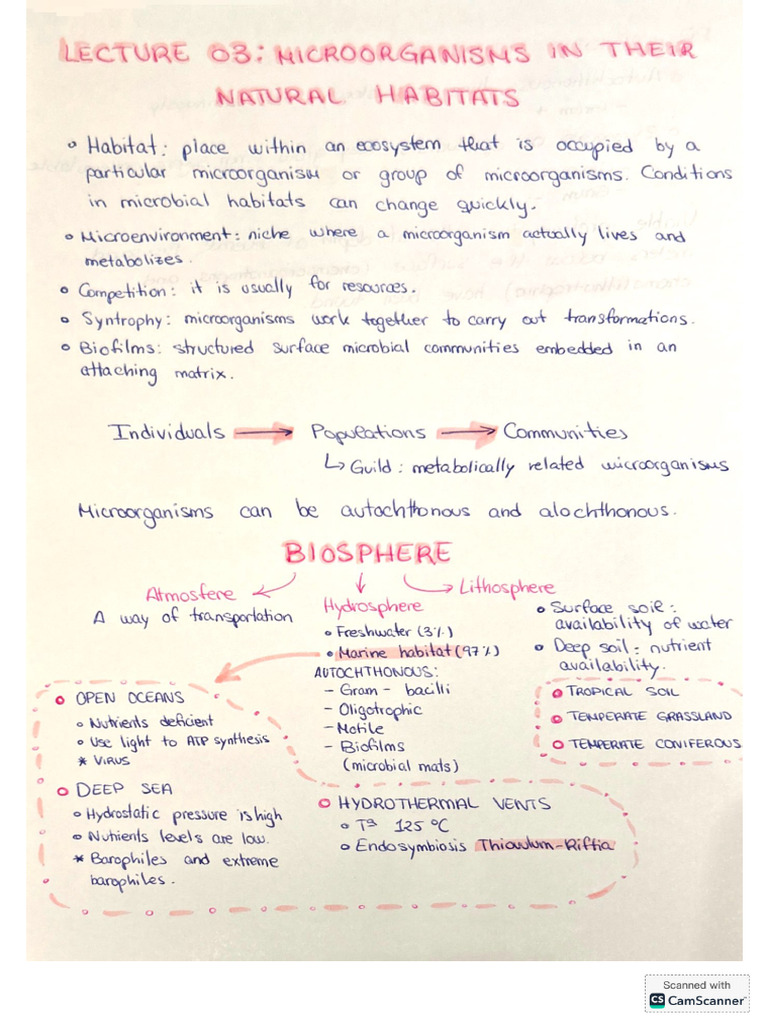 LECTURE 03: MICROORGANISMS IN THEIR
NATURAL HABITATS
• Habitat: place within an ecosystem that is occupied by a
particular microorganism or group of microorganisms. Conditions
in microbial habitats can change quickly.
• Microenvironment: niche where a microorganism actually lives and
metabolizes.
• Competition: it is usually for resources.
• Syntrophy: microorganisms work together to carry out transformations.
• Biofilms: structured surface microbial communities embedded in an
attaching matrix.
Individuals → Populations → Communities
↳ Guild: metabolically related microorganisms
Microorganisms can be autochthonous and alochthonous.
BIOSPHERE
Atmosfere
A way of transportation
Hydrosphere
• Freshwater (3%)
• Marine habitat (97%)
AUTOCHTHONOUS:
- Gram - bacilli
- Oligotrophic
- Motile
- Biofilms
(microbial mats)
Lithosphere
• Surface soil:
availability of water
• Deep soil: nutrient
availability.
○ TROPICAL SOIL
○ TEMPERATE GRASSLAND
○ TEMPERATE CONIFEROUS
○ OPEN OCEANS
• Nutrients deficient
• Use light to ATP synthesis
* Virus
○ DEEP SEA
• Hydrostatic pressure is high
• Nutrients levels are low.
* Barophiles and extreme
barophiles.
○ HYDROTHERMAL VENTS
• Tª 125 °C
• Endosymbiosis Thiovulum-Riftia
Scanned with
CS CamScanner